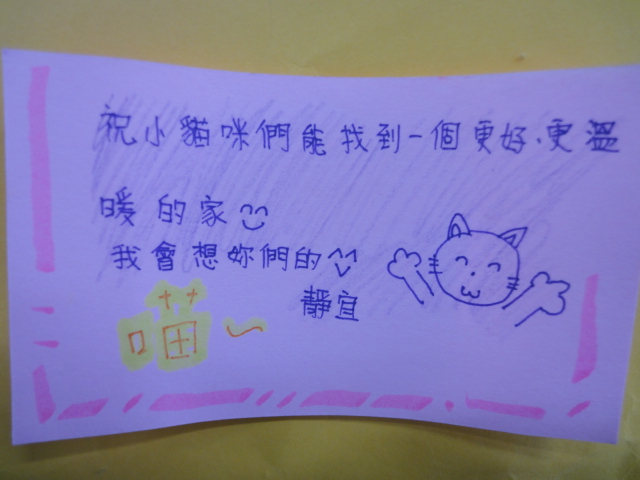 祝小貓咪們能找到一個更好、更溫
暖的家
我會想妳們的
靜宜
喵~